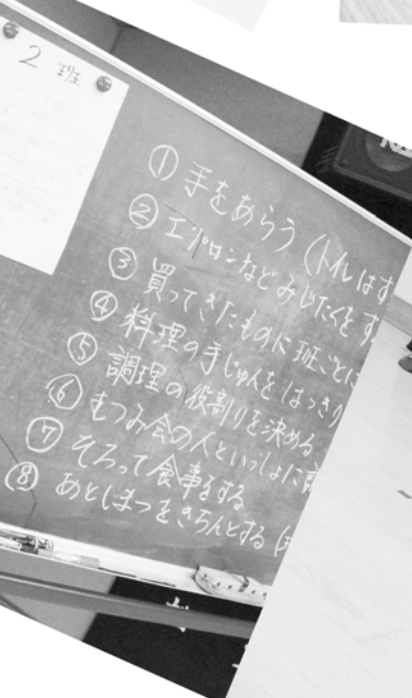 2 班
① 手をあらう (トイレはす
② エプロンなどみじたくをす
③ 買ってきたものに班ごとに
④ 料理の手じゅんをはっきり
⑤ 調理の役割りを決める
⑥ もつみ会の人といっしょに
⑦ そろって食事をする
⑧ あとしまつをきちんとする (